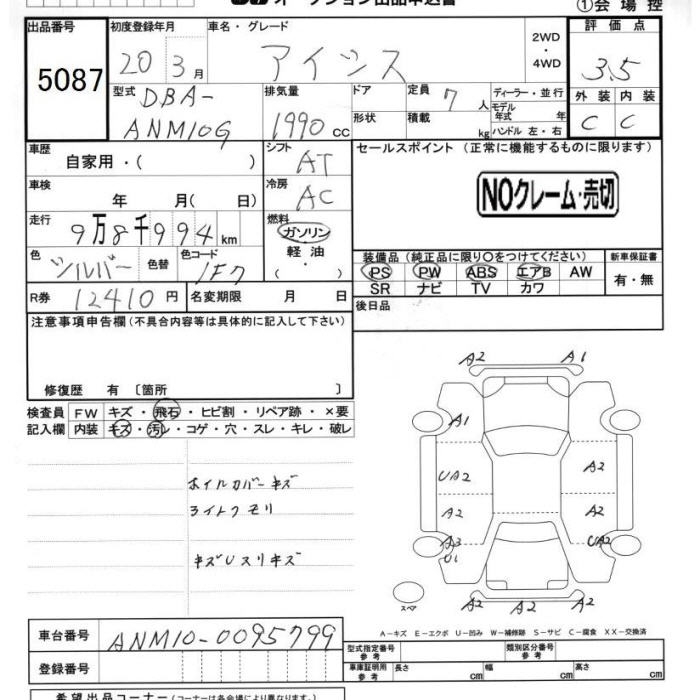 オークション出品申込書
①会場控
出品番号 初度登録年月 車名・グレード 評価点
5087 20 3月 アイシス 2WD・4WD 3.5
型式 DBA-ANM10G 排気量 1990cc ドア 形状 定員 7人 積載 kg ディーラー・並行 モデル年式 年 ハンドル 左・右 外装 内装
C C
車歴 自家用・( ) シフト AT セールスポイント (正常に機能するものに限ります)
車検 年 月( 日) 冷房 AC NOクレーム・売切
走行 9万8千994km 燃料 ガソリン・軽油・
色 シルバー 色替 色コード 1F7 装備品(純正品に限り○をつけてください) 新車保証書
PS PW ABS エアB AW 有・無
SR ナビ TV カワ
R券 12410円 名変期限 月 日 後日品
注意事項申告欄(不具合内容等は具体的に記入して下さい)
修復歴 有〔箇所 〕
検査員 FW キズ・飛石・ヒビ割・リペア跡・×要
記入欄 内装 キズ・汚レ・コゲ・穴・スレ・キレ・破レ
ホイルカバーキズ
ライトクモリ
キズUスリキズ
A2 A1
A1
UA2 A2
A2 A2
A3 UA2
U1
A2 A2 A2
スペア
A-キズ E-エクボ U-凹み W-補修跡 S-サビ C-腐食 XX-交換済
車台番号 ANM10-0095799 型式指定番号 参考 類別区分番号 参考
登録番号 車庫証明用 参考 長さ cm 幅 cm 高さ cm
希望出品コーナー(コーナーは各会場により異なります。)